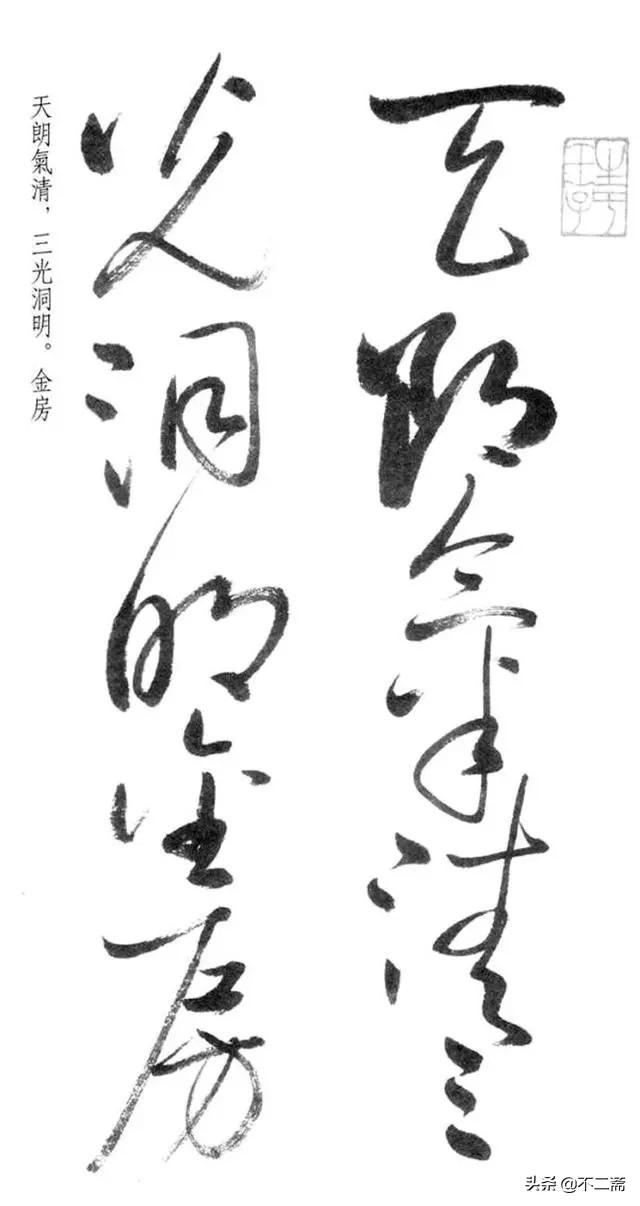 天朗氣清三
光洞明金房
天朗氣清，三光洞明。金房
头条@不二斋